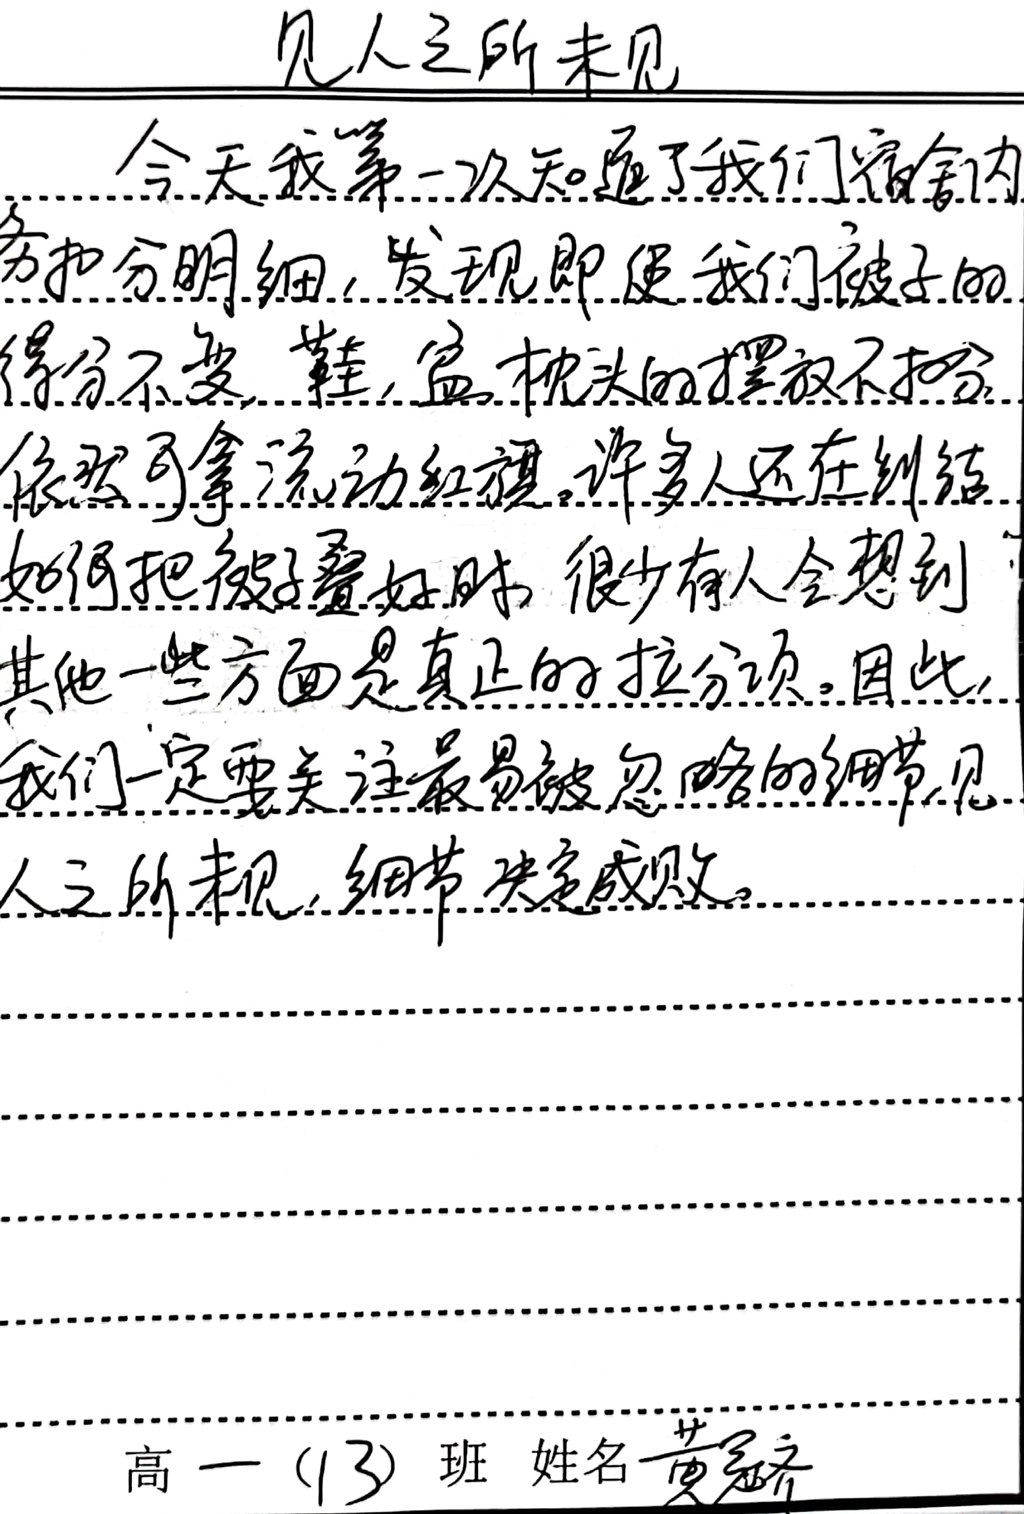 见人之所未见
今天我第一次知道了我们宿舍内
务扣分明细，发现即使我们被子的
得分不变，鞋，盆，枕头的摆放不扣分，
依然可拿流动红旗。许多人还在纠结
如何把被子叠好时，很少有人会想到
其他一些方面是真正的拉分项。因此，
我们一定要关注最易被忽略的细节，见
人之所未见，细节决定成败。
高一（13）班 姓名 黄